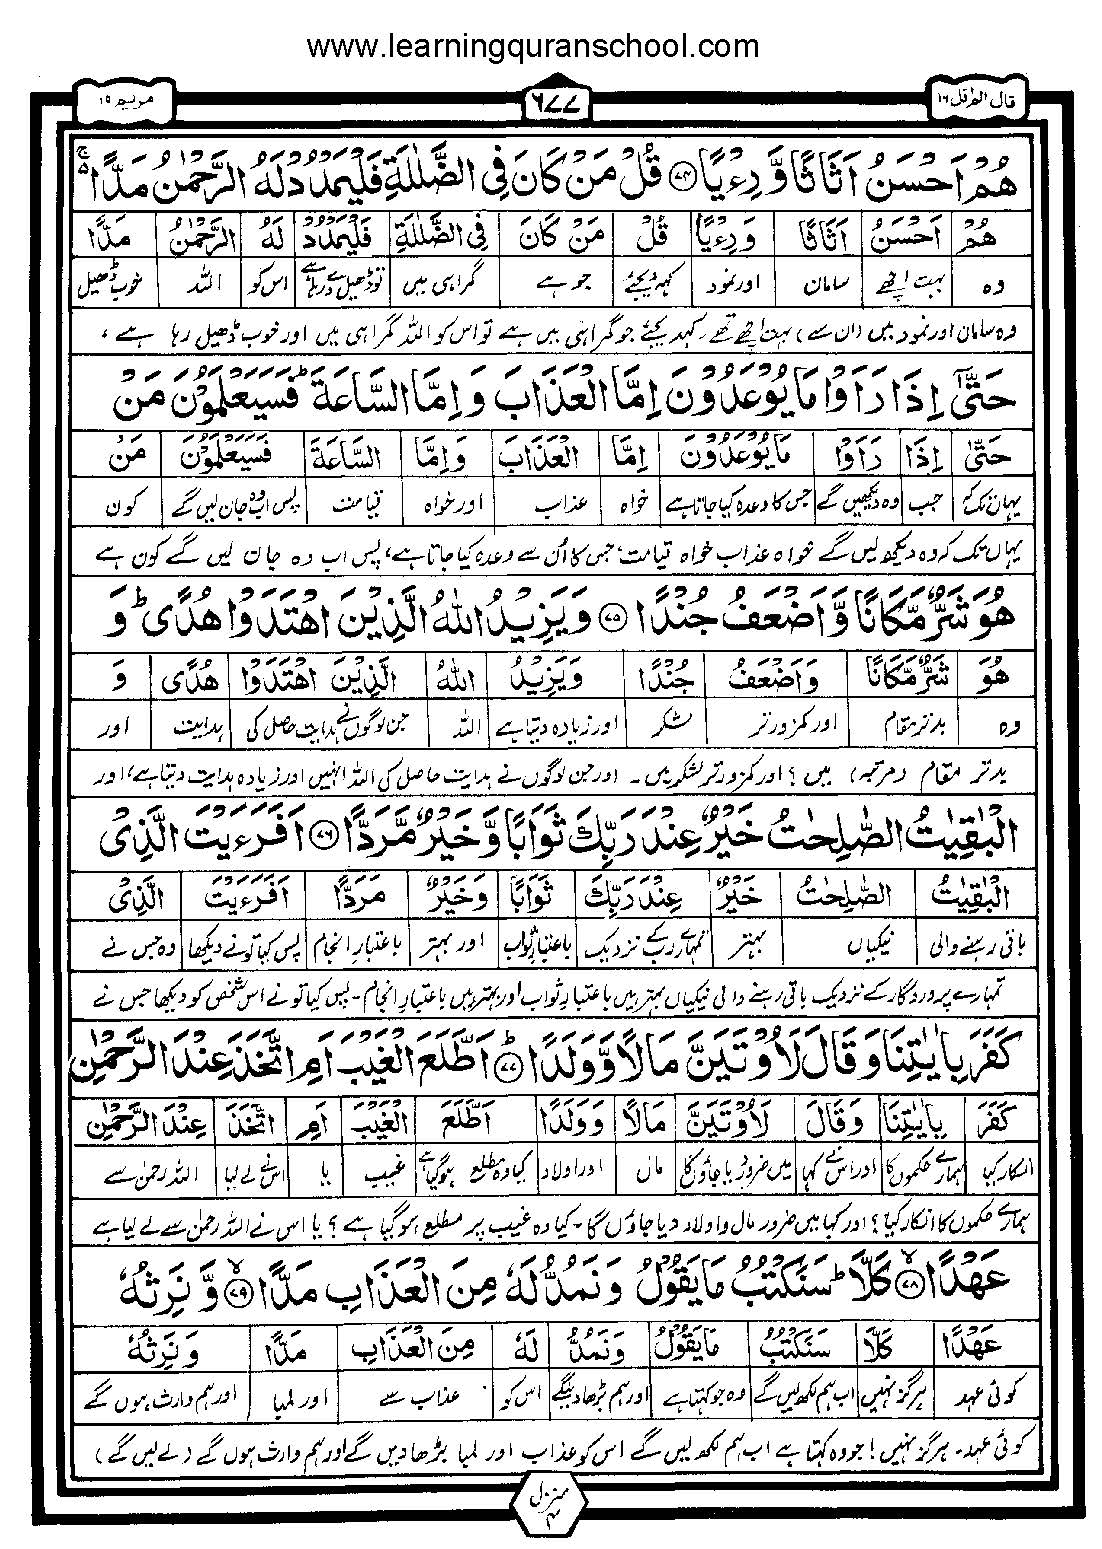 www.learningquranschool.com
مریم ۱۹
۶۷۷
قال الم اقل ۱۶
هُمْ اَحْسَنُ اَثَاثًا وَّ رِءْيًا ﴿۷۴﴾ قُلْ مَنْ كَانَ فِي الضَّلٰلَةِ فَلْيَمْدُدْ لَهُ الرَّحْمٰنُ مَدًّا ۚ۬
هُمْ اَحْسَنُ اَثَاثًا وَ رِءْيًا قُلْ مَنْ كَانَ فِي الضَّلٰلَةِ فَلْيَمْدُدْ لَهُ الرَّحْمٰنُ مَدًّا
وہ بہت اچھے سامان اور نمود کہہ دیجئے جو ہے گمراہی میں تو ڈھیل دے رہا ہے اس کو اللہ خوب ڈھیل
وہ سامان اور نمود میں (ان سے) بہت اچھے تھے، کہہ دیجئے جو گمراہی میں ہے تو اس کو اللہ گمراہی میں اور خوب ڈھیل رہا ہے،
حَتّٰۤى اِذَا رَاَوْا مَا يُوْعَدُوْنَ اِمَّا الْعَذَابَ وَ اِمَّا السَّاعَةَ ؕ فَسَيَعْلَمُوْنَ مَنْ
حَتّٰى اِذَا رَاَوْا مَا يُوْعَدُوْنَ اِمَّا الْعَذَابَ وَ اِمَّا السَّاعَةَ فَسَيَعْلَمُوْنَ مَنْ
یہاں تک کہ جب وہ دیکھیں گے جس کا وعدہ کیا جاتا ہے خواہ عذاب اور خواہ قیامت پس اب وہ جان لیں گے کون
یہاں تک کہ وہ دیکھ لیں گے خواہ عذاب خواہ قیامت، جس کا اُن سے وعدہ کیا جاتا ہے، پس اب وہ جان لیں گے کون ہے
هُوَ شَرٌّ مَّكَانًا وَّ اَضْعَفُ جُنْدًا ﴿۷۵﴾ وَ يَزِيْدُ اللّٰهُ الَّذِيْنَ اهْتَدَوْا هُدًى ؕ وَ
هُوَ شَرٌّ مَّكَانًا وَ اَضْعَفُ جُنْدًا وَ يَزِيْدُ اللّٰهُ الَّذِيْنَ اهْتَدَوْا هُدًى وَ
وہ بدتر مقام اور کمزور تر لشکر اور زیادہ دیتا ہے اللہ جن لوگوں نے ہدایت حاصل کی ہدایت اور
بدتر مقام (مرتبہ) میں؟ اور کمزور تر لشکر میں۔ اور جن لوگوں نے ہدایت حاصل کی اللہ انہیں اور زیادہ ہدایت دیتا ہے، اور
الْبٰقِيٰتُ الصّٰلِحٰتُ خَيْرٌ عِنْدَ رَبِّكَ ثَوَابًا وَّ خَيْرٌ مَّرَدًّا ﴿۷۶﴾ اَفَرَءَيْتَ الَّذِيْ
الْبٰقِيٰتُ الصّٰلِحٰتُ خَيْرٌ عِنْدَ رَبِّكَ ثَوَابًا وَ خَيْرٌ مَرَدًّا اَفَرَءَيْتَ الَّذِيْ
باقی رہنے والی نیکیاں بہتر تمہارے رب کے نزدیک باعتبارِ ثواب اور بہتر باعتبارِ انجام پس کیا تو نے دیکھا وہ جس نے
تمہارے پروردگار کے نزدیک باقی رہنے والی نیکیاں بہتر ہیں باعتبارِ ثواب اور بہتر ہیں باعتبارِ انجام۔ پس کیا تو نے اس شخص کو دیکھا جس نے
كَفَرَ بِاٰيٰتِنَا وَ قَالَ لَاُوْتَيَنَّ مَالًا وَّ وَلَدًا ﴿۷۷﴾ؕ اَطَّلَعَ الْغَيْبَ اَمِ اتَّخَذَ عِنْدَ الرَّحْمٰنِ
كَفَرَ بِاٰيٰتِنَا وَ قَالَ لَاُوْتَيَنَّ مَالًا وَ وَلَدًا اَطَّلَعَ الْغَيْبَ اَمِ اتَّخَذَ عِنْدَ الرَّحْمٰنِ
انکار کیا ہمارے حکموں کا اور اس نے کہا میں ضرور دیا جاؤں گا مال اور اولاد کیا وہ مطلع ہو گیا ہے غیب یا اس نے لے لیا اللہ رحمٰن سے
ہمارے حکموں کا انکار کیا؟ اور کہا میں ضرور مال و اولاد دیا جاؤں گا۔ کیا وہ غیب پر مطلع ہو گیا ہے؟ یا اس نے اللہ رحمٰن سے لے لیا ہے
عَهْدًا ﴿۷۸﴾ۙ كَلَّا ؕ سَنَكْتُبُ مَا يَقُوْلُ وَ نَمُدُّ لَهٗ مِنَ الْعَذَابِ مَدًّا ﴿۷۹﴾ۙ وَّ نَرِثُهٗ
عَهْدًا كَلَّا سَنَكْتُبُ مَا يَقُوْلُ وَ نَمُدُّ لَهٗ مِنَ الْعَذَابِ مَدًّا وَ نَرِثُهٗ
کوئی عہد ہرگز نہیں اب ہم لکھ لیں گے وہ جو کہتا ہے اور ہم بڑھا دینگے اس کو عذاب سے اور لمبا اور ہم وارث ہوں گے
کوئی عہد۔ ہرگز نہیں! جو وہ کہتا ہے اب ہم لکھ لیں گے اس کو عذاب اور لمبا بڑھا دیں گے اور ہم وارث ہوں گے (لے لیں گے)
منزل ۴